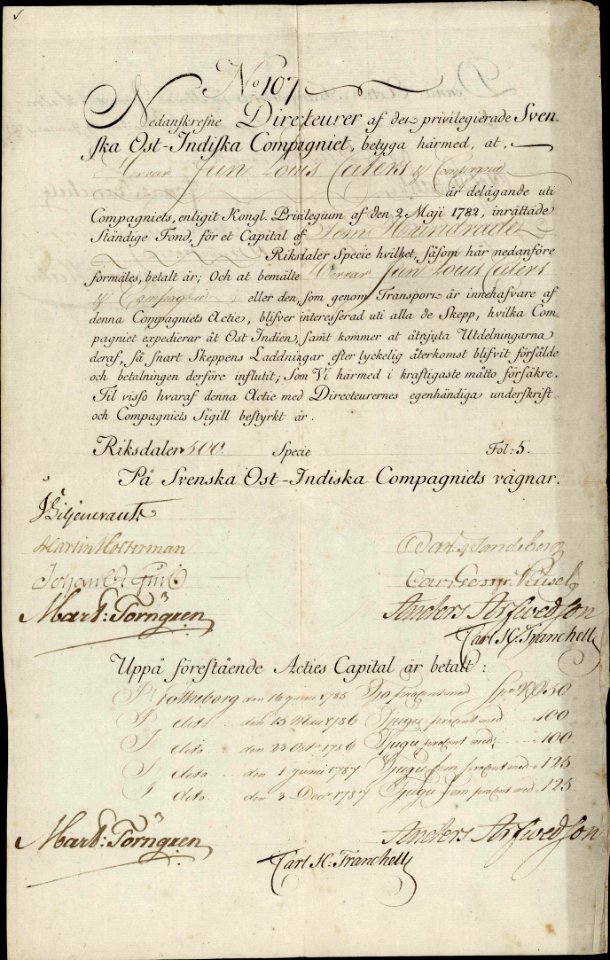 No 107
Nedanskrefne Directeurer af det privilegierade Sven-
ska Ost-Indiska Compagniet, betyga härmed, at
Herrar Jean Louis Caters & Compagnie
är delägande uti
Compagniets, enligit Kongl. Privilegium af den 2. Maji 1782, inrättade
Ständige Fond, för et Capital af Fem Hundrade
Riksdaler Specie hvilket, såsom här nedanföre
förmäles, betalt är; Och at bemälte Herrar Jean Louis Caters
& Compagnie eller den, som genom Transport är innehafvare af
denna Compagniets Actie, blifver interesserad uti alla de Skepp, hvilka Com-
pagniet expedierar åt Ost Indien, samt kommer at åtnjuta Utdelningarna
deraf, så snart Skeppens Laddningar efter lyckelig återkomst blifvit försålde
och betalningen derföre influtit; Som Vi härmed i kraftigaste måtto försäkre.
Til visso hvaraf denna Actie med Directeurernes egenhändiga underskrift
och Compagniets Sigill bestyrkt är.
Riksdaler 500 Specie Fol: 5.
På Svenska Ost-Indiska Compagniets vägnar.
Martin Holterman
Mart: Törngren Anders Arfwedson
Carl H. Tranchell
Uppå förestående Acties Capital är betalt:
Götheborg den 16 Junii 1785 Tjo procent med Sp: Rd 50
dito den 15 1786 Tjugu procent med 100
dito den 23 Octr 1786 Tjugu procent med 100
dito den 1 Junii 1787 Tjugu fem procent med 125
dito den 3 Decr 1787 Tjugu fem procent med 125
Mart: Törngren Anders Arfwedson
Carl H. Tranchell